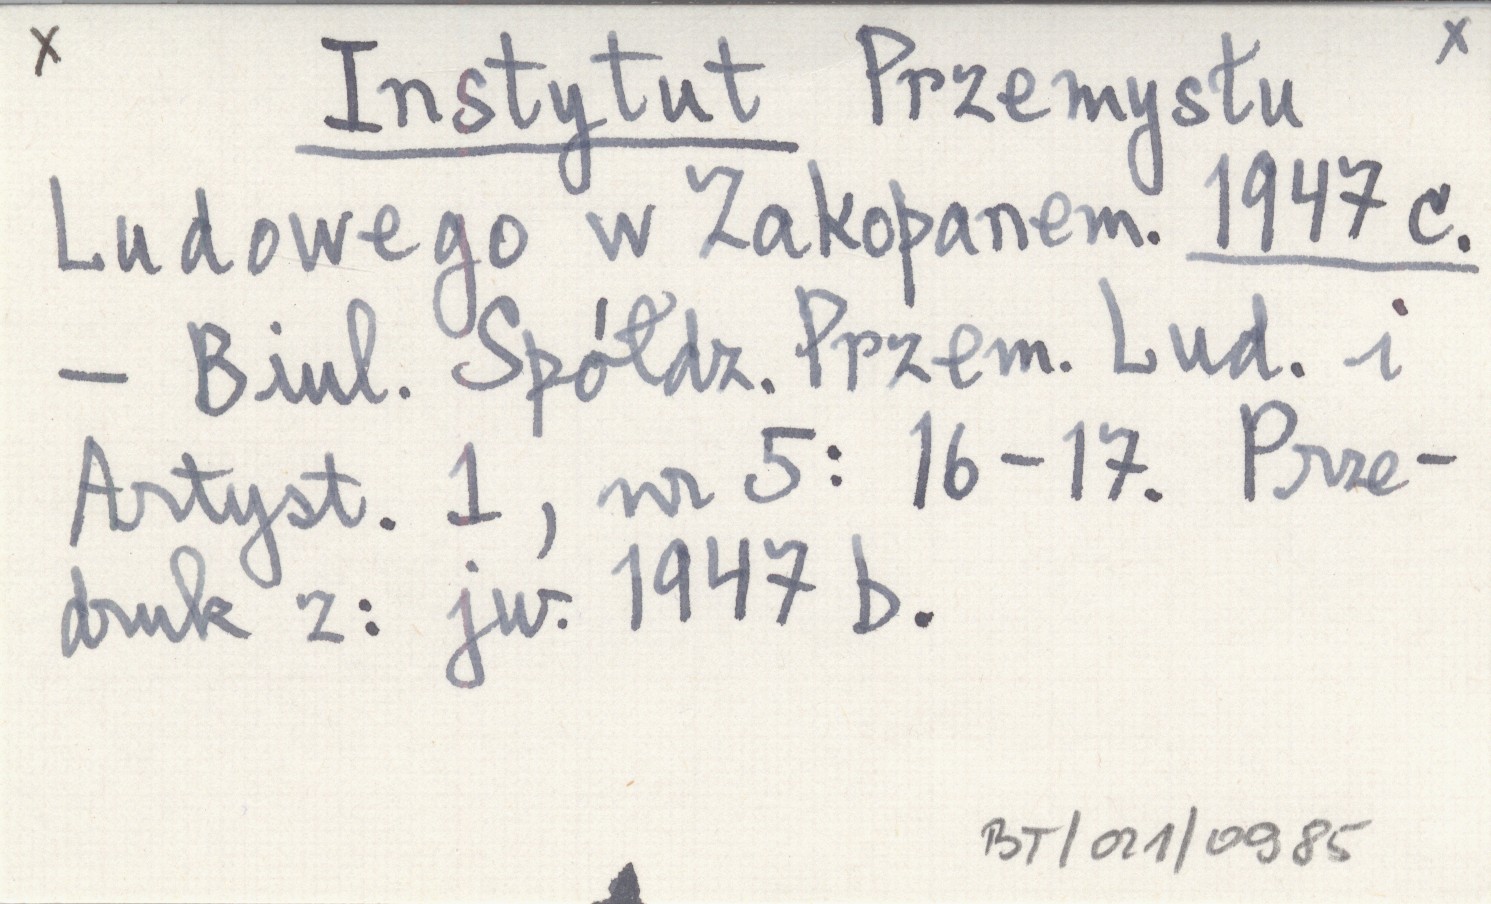 x x
Instytut Przemysłu
Ludowego w Zakopanem. 1947 c.
– Biul. Spółdz. Przem. Lud. i
Artyst. 1, nr 5: 16–17. Prze-
druk z: jw. 1947 b.
BT/021/0985